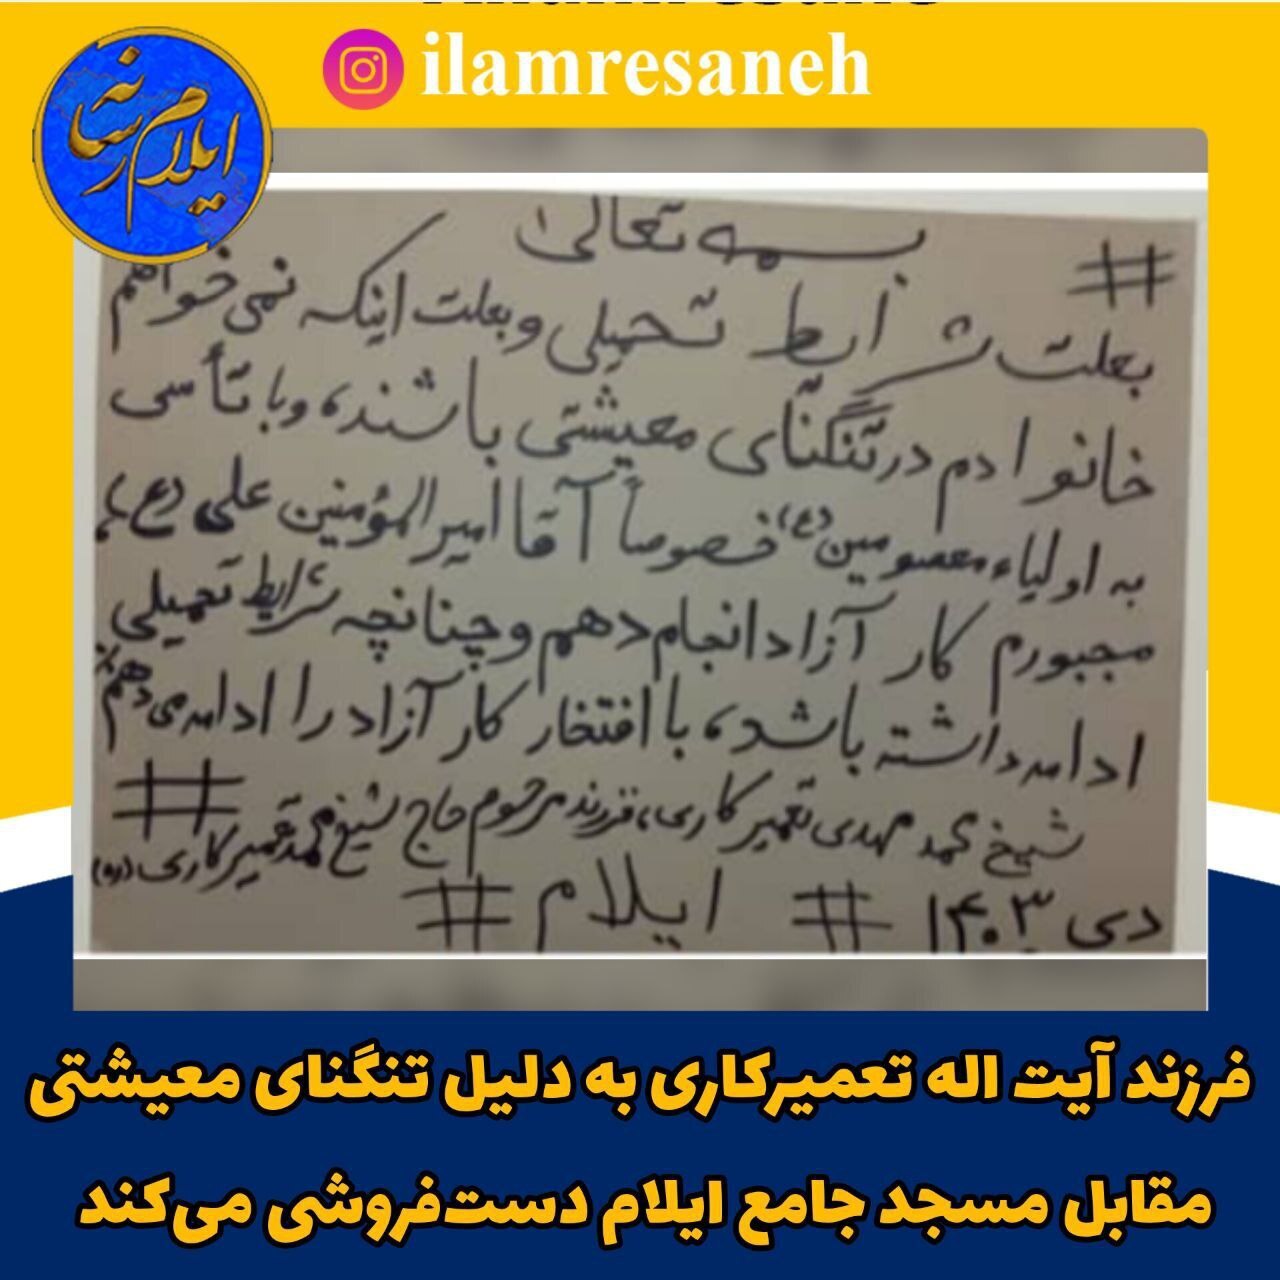 ilamresaneh
ایلام رسانه
# بسمه تعالی
بعلت شرایط تحمیلی و بعلت اینکه نمی خواهم
خانوادم در تنگنای معیشتی باشند، و با تأسی
به اولیاء معصومین(ع) خصوصاً آقا امیرالمؤمنین علی (ع)،
مجبورم کار آزاد انجام دهم و چنانچه شرایط تحمیلی
ادامه داشته باشد، با افتخار کار آزاد را ادامه می دهم
شیخ محمد مهدی تعمیرکاری، فرزند مرحوم حاج شیخ محمد تعمیرکاری (ره) #
دی ۱۴۰۳ # ایلام #
فرزند آیت اله تعمیرکاری به دلیل تنگنای معیشتی
مقابل مسجد جامع ایلام دست‌فروشی می‌کند